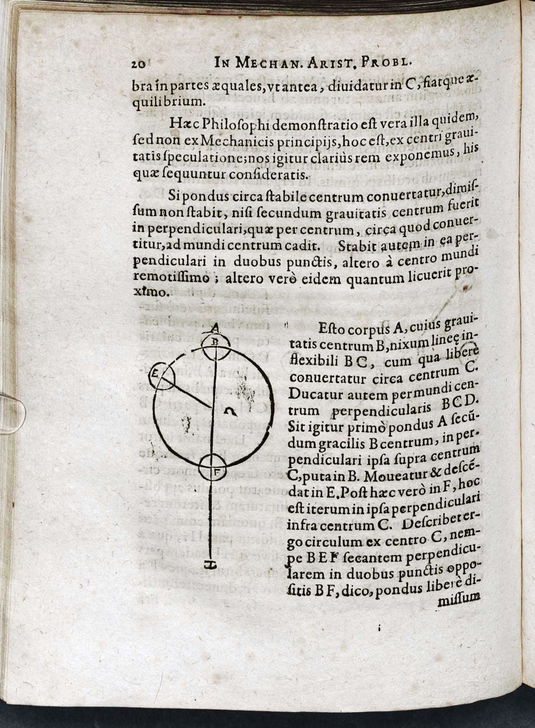 20 IN MECHAN. ARIST. PROBL.
bra in partes æquales, vt antea, diuidatur in C, fiatque æ-
quilibrium.
Hæc Philosophi demonstratio est vera illa quidem,
sed non ex Mechanicis principijs, hoc est, ex centri graui-
tatis speculatione; nos igitur clariùs rem exponemus, his
quæ sequuntur consideratis.
Si pondus circa stabile centrum conuertatur, dimis-
sum non stabit, nisi secundum grauitatis centrum fuerit
in perpendiculari, quæ per centrum, circa quod conuer-
titur, ad mundi centrum cadit. Stabit autem in ea per-
pendiculari in duobus punctis, altero à centro mundi
remotissimo; altero verò eidem quantum licuerit pro-
ximo.
A
B
E
C
F
Esto corpus A, cuius graui-
tatis centrum B, nixum lineę in-
flexibili BC, cum qua liberè
conuertatur circa centrum C.
Ducatur autem per mundi cen-
trum perpendicularis BCD.
Sit igitur primò pondus A secũ-
dum gracilis B centrum, in per-
pendiculari ipsa supra centrum
C, puta in B. Moueatur & descẽ-
dat in E. Post hæc verò in F, hoc
est iterum in ipsa perpendiculari
infra centrum C. Describet er-
go circulum ex centro C, nem-
pe BEF secantem perpendicu-
larem in duobus punctis oppo-
sitis BF, dico, pondus liberè di-
missum